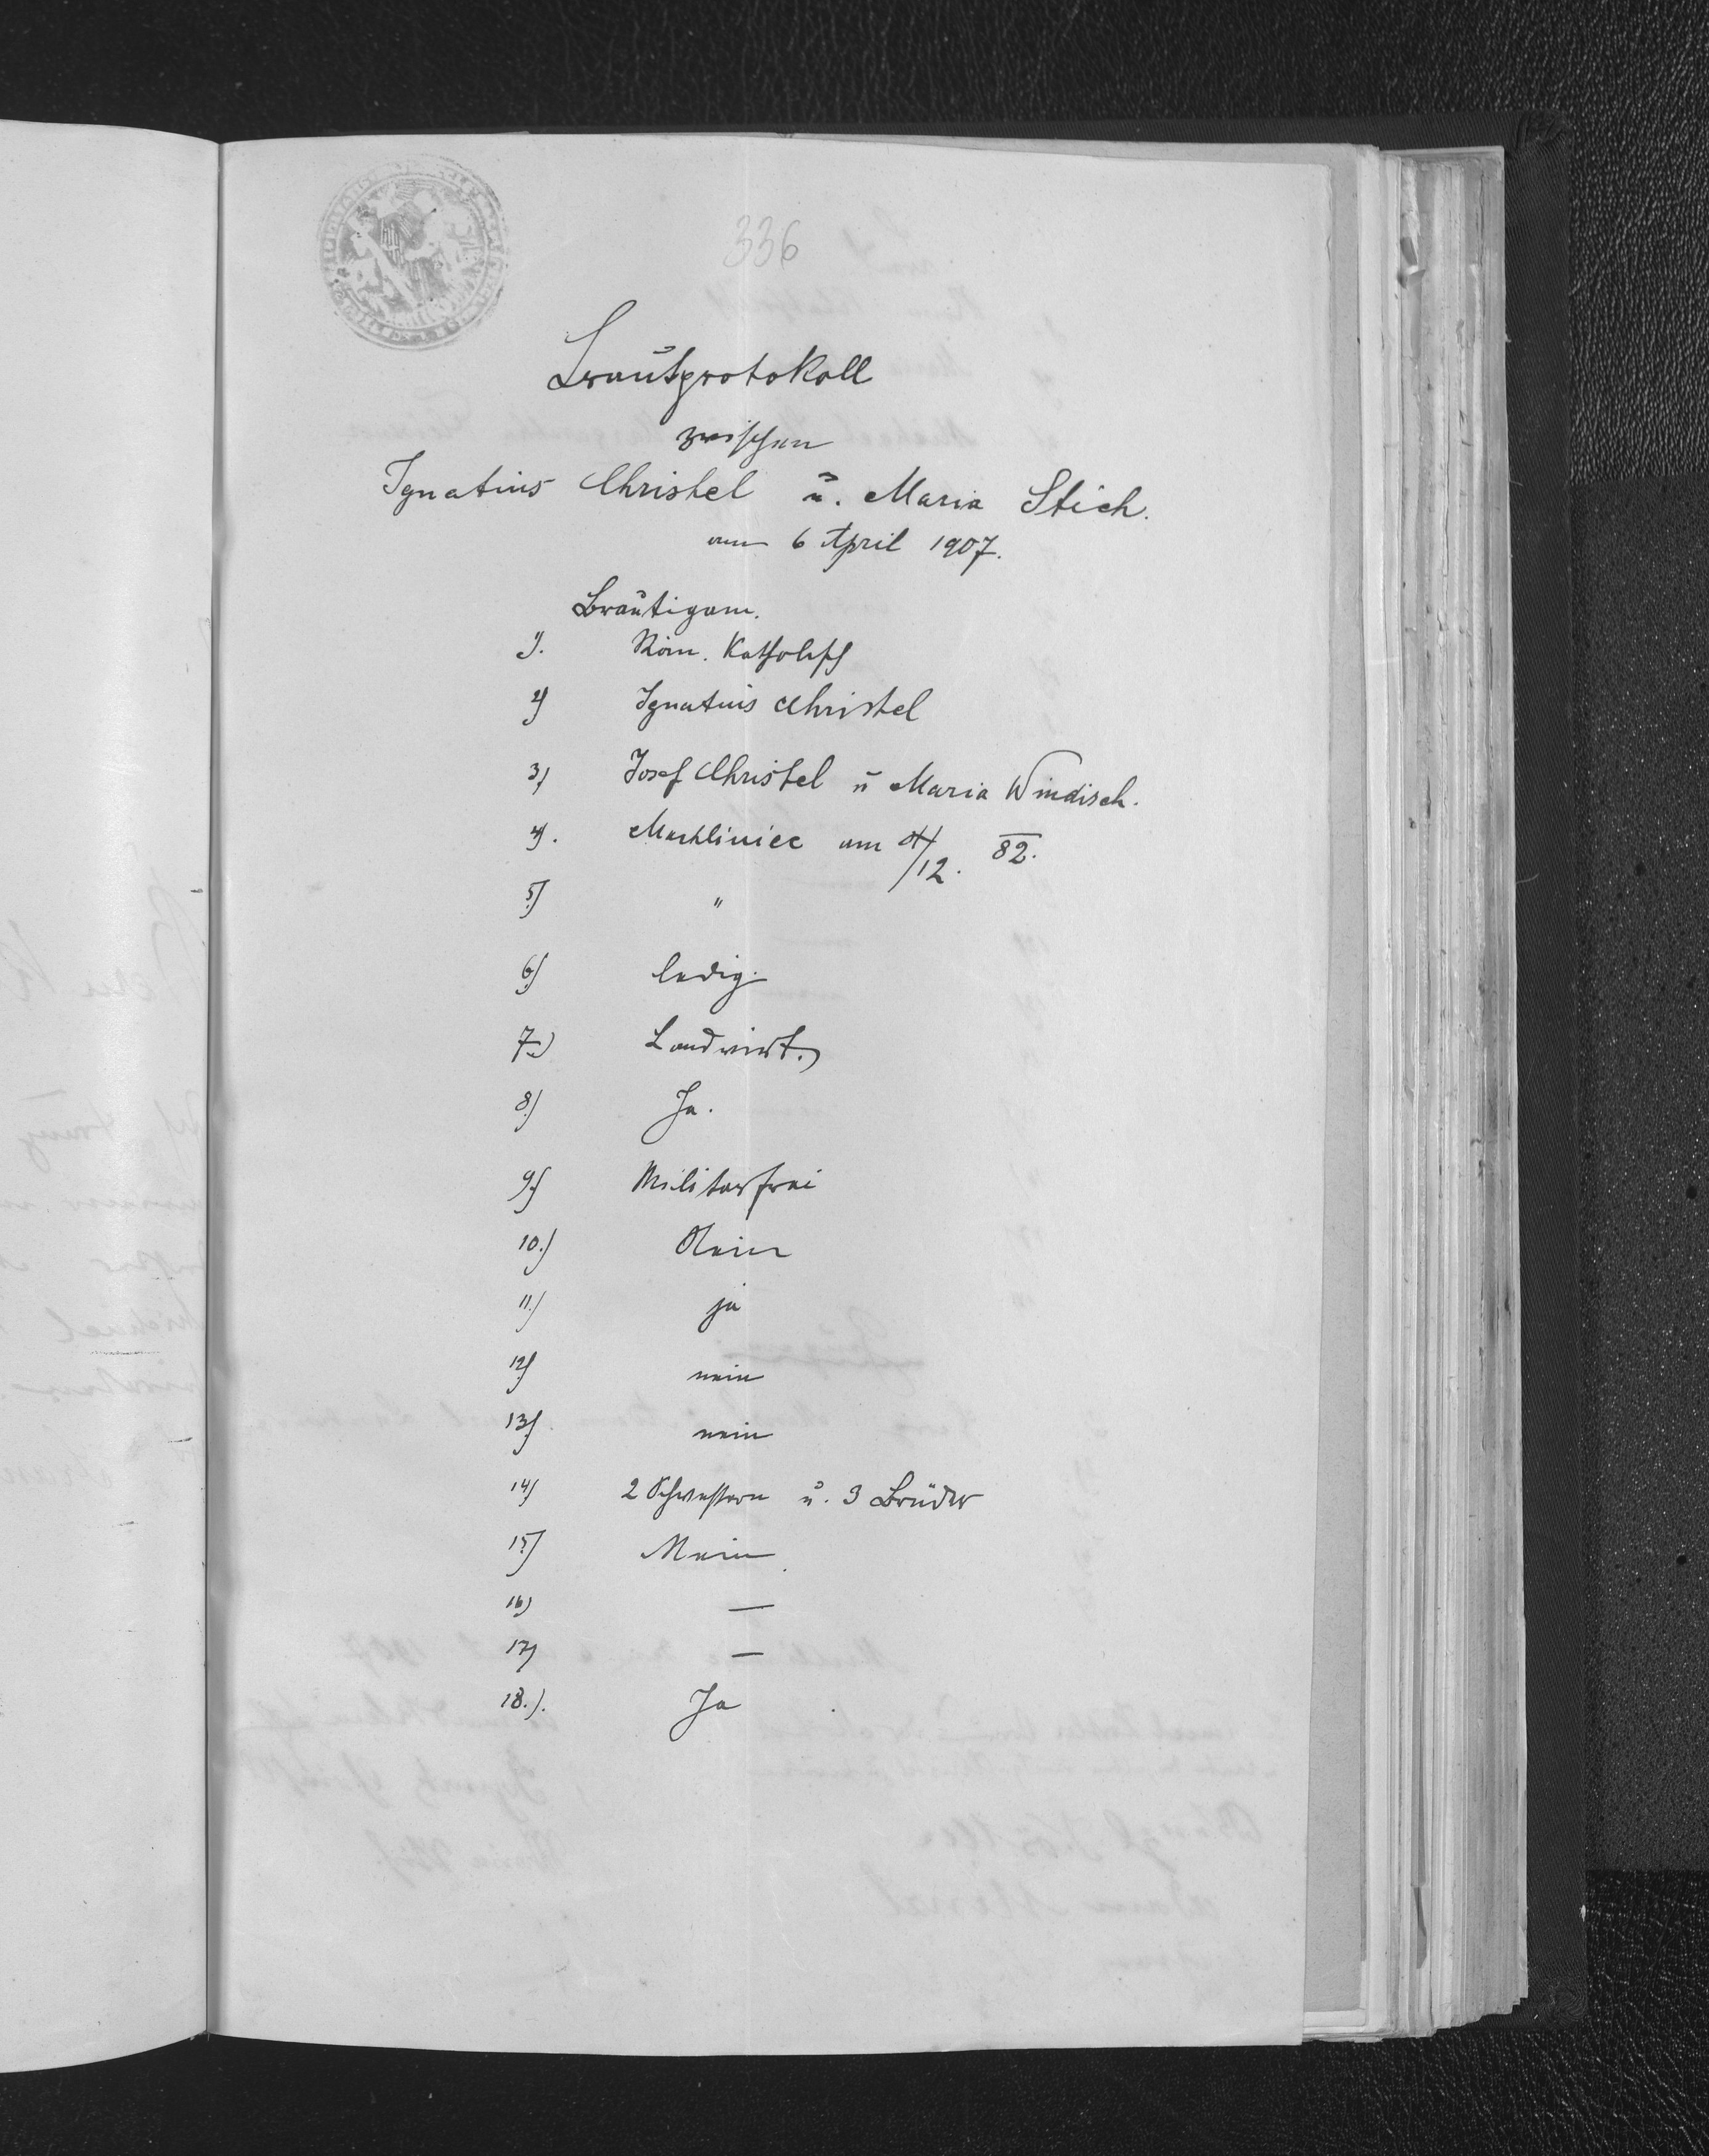 336
Brautprotokoll
zwischen
Ignatius Christel u. Maria Stich.
am 6 April 1907.
Bräutigam.
1). Röm. Katholisch
2) Ignatius Christel
3) Josef Christel u Maria Windisch.
4). Machliniec am /12. 82.
5) "
6) ledig.
7.) Landwirt.
8.) Ja.
9.) Militärfrei
10.) Nein
11.) ja
12) nein
13) nein
14) 2 Schwestern u. 3 Brüder
15) Nein.
16) —
17) —
18.). Ja